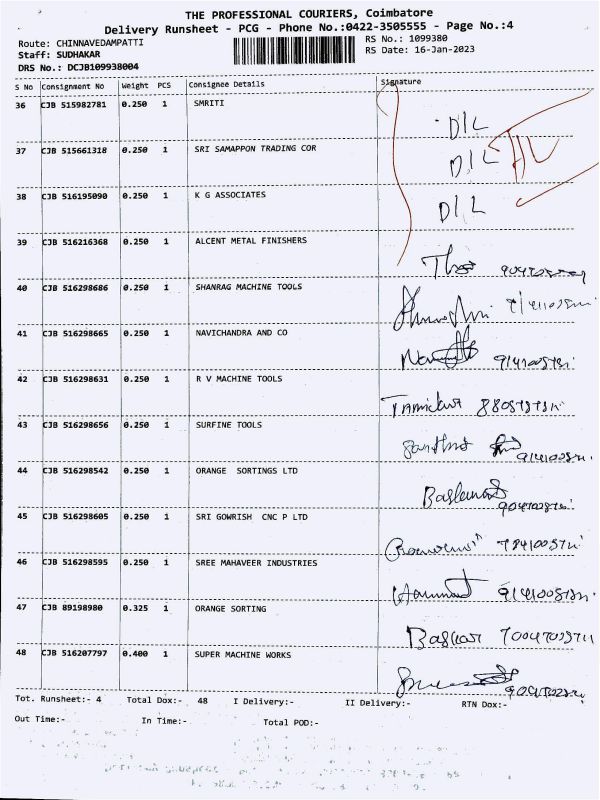 THE PROFESSIONAL COURIERS, Coimbatore
Delivery Runsheet - PCG - Phone No.:0422-3505555 - Page No.:4
Route: CHINNAVEDAMPATTI
RS No.: 1099380
Staff: SUDHAKAR
RS Date: 16-Jan-2023
DRS No.: DCJB109938004
S No Consignment No Weight PCS Consignee Details Signature
36 CJB 515982781 0.250 1 SMRITI D/L
37 CJB 515661318 0.250 1 SRI SAMAPPON TRADING COR D/L
38 CJB 516195090 0.250 1 K G ASSOCIATES D/L
39 CJB 516216368 0.250 1 ALCENT METAL FINISHERS
40 CJB 516298686 0.250 1 SHANRAG MACHINE TOOLS
41 CJB 516298665 0.250 1 NAVICHANDRA AND CO
42 CJB 516298631 0.250 1 R V MACHINE TOOLS
43 CJB 516298656 0.250 1 SURFINE TOOLS
44 CJB 516298542 0.250 1 ORANGE SORTINGS LTD
45 CJB 516298605 0.250 1 SRI GOWRISH CNC P LTD
46 CJB 516298595 0.250 1 SREE MAHAVEER INDUSTRIES
47 CJB 89198980 0.325 1 ORANGE SORTING Baskar
48 CJB 516207797 0.400 1 SUPER MACHINE WORKS
Tot. Runsheet:- 4 Total Dox:- 48 I Delivery:- II Delivery:- RTN Dox:-
Out Time:- In Time:- Total POD:-